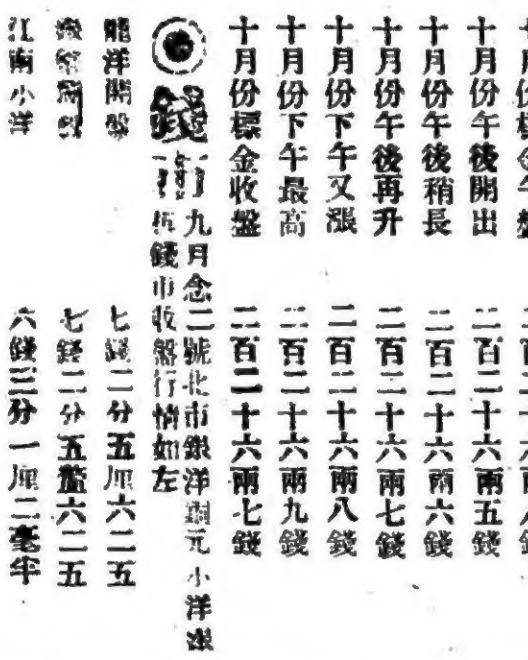 十月份標金午盤
十月份午後開出 二百二十六兩五錢
十月份午後稍長 二百二十六兩六錢
十月份午後再升 二百二十六兩七錢
十月份下午又漲 二百二十六兩八錢
十月份下午最高 二百二十六兩九錢
十月份標金收盤 二百二十六兩七錢
◉錢市
九月念二號北市銀洋銅元小洋
錢市收盤行情如左
龍洋開盤 七錢二分五厘六二五
七錢二分五厘六二五
江南小洋 六錢三分一厘二毫半